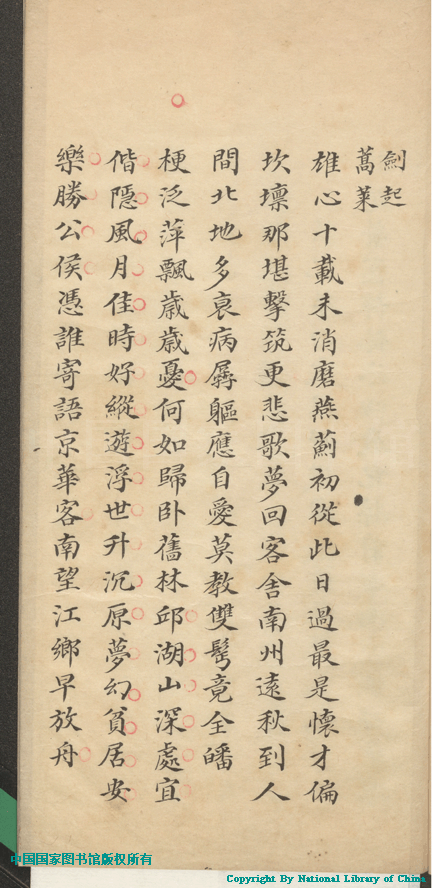 劍起
蒿萊
雄心十載未消磨燕薊初從此日過最是懷才偏
坎壈那堪擊筑更悲歌夢回客舍南州遠秋到人
間北地多衰病孱軀應自愛莫教雙鬂竟全皤
梗泛萍飄歲歲憂何如歸臥舊林邱湖山深處宜
偕隱風月佳時好縱遊浮世升沉原夢幻貧居安
樂勝公侯憑誰寄語京華客南望江鄉早放舟
中国国家图书馆版权所有
Copyright By National Library of China